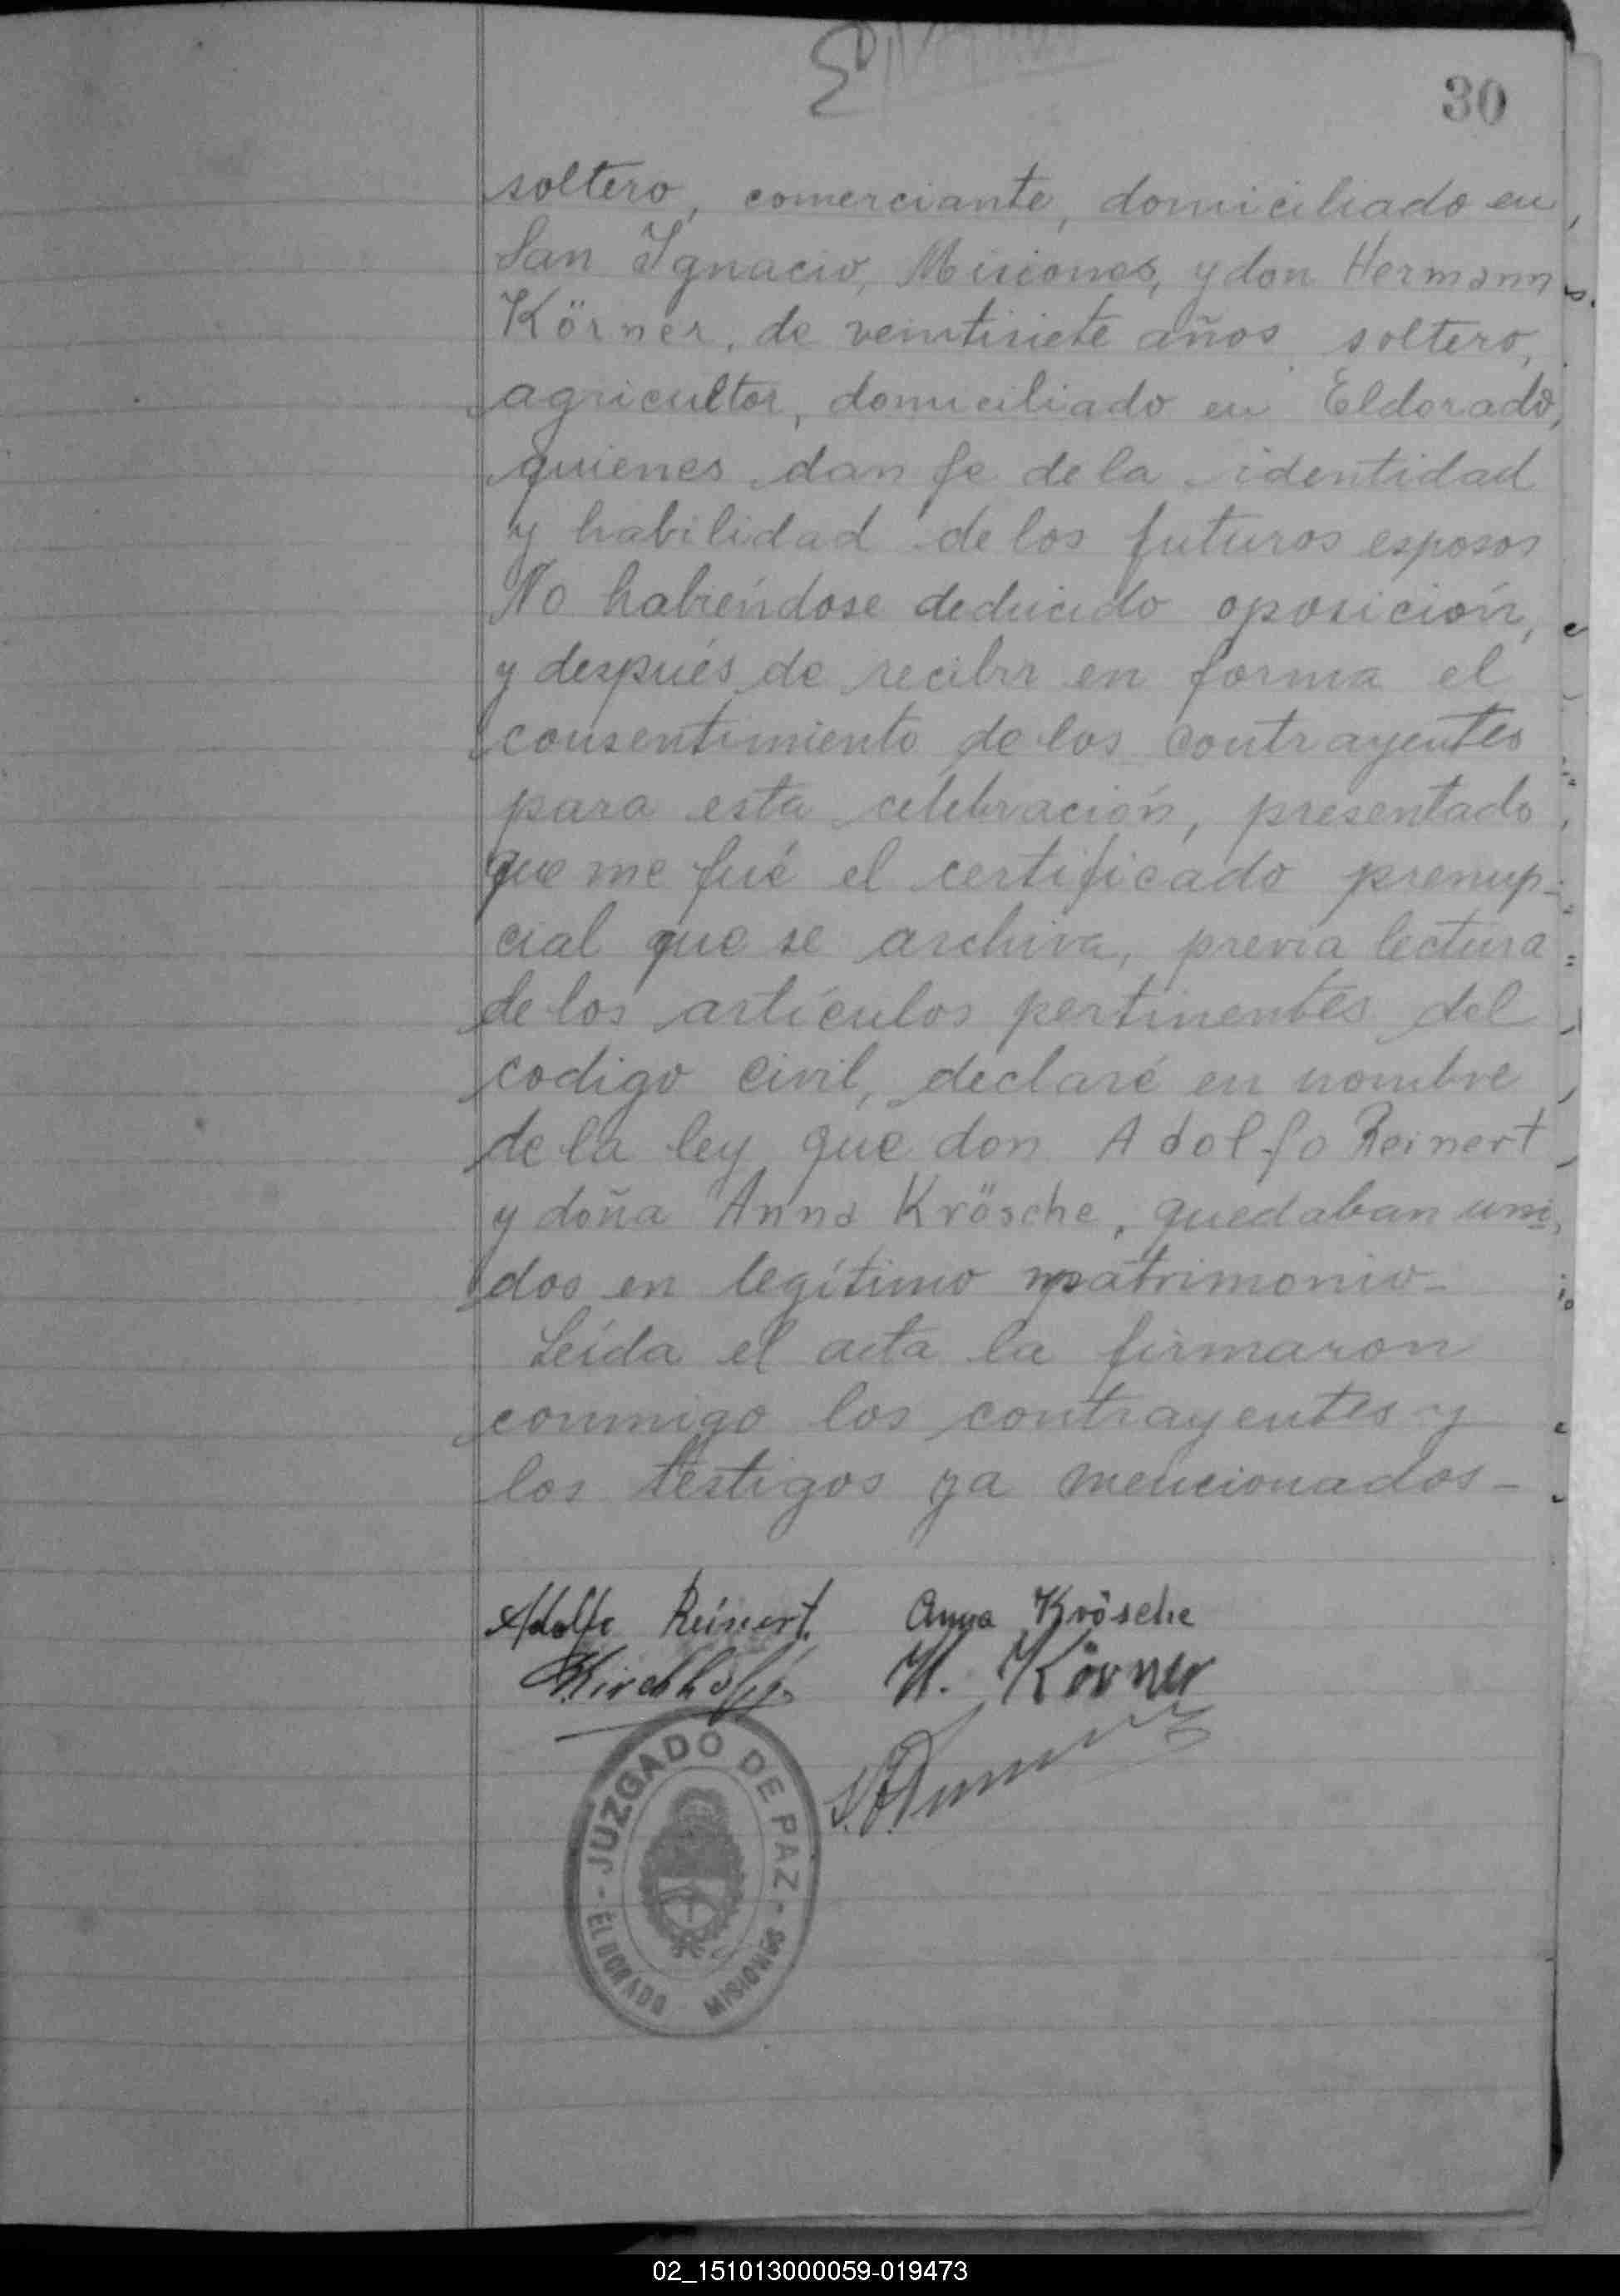 30
soltero, comerciante, domiciliado en
San Ignacio, Misiones, y don Hermann
Körner, de veintisiete años, soltero,
agricultor, domiciliado en Eldorado,
quienes dan fe de la identidad
y habilidad de los futuros esposos
No habiéndose deducido oposición,
y después de recibir en forma el
consentimiento de los contrayentes
para esta celebración, presentado
que me fué el certificado prenup-
cial que se archiva, previa lectura
de los artículos pertinentes del
codigo civil, declaré en nombre
de la ley que don Adolfo Reinert
y doña Anna Krösche, quedaban uni
dos en legítimo matrimonio-
Leída el acta la firmaron
conmigo los contrayentes y
los testigos ya mencionados-
Adolfo Reinert. Anna Krösche
Kirchhoff H. Körner
JUZGADO DE PAZ
- ELDORADO MISIONES -
02_151013000059-019473